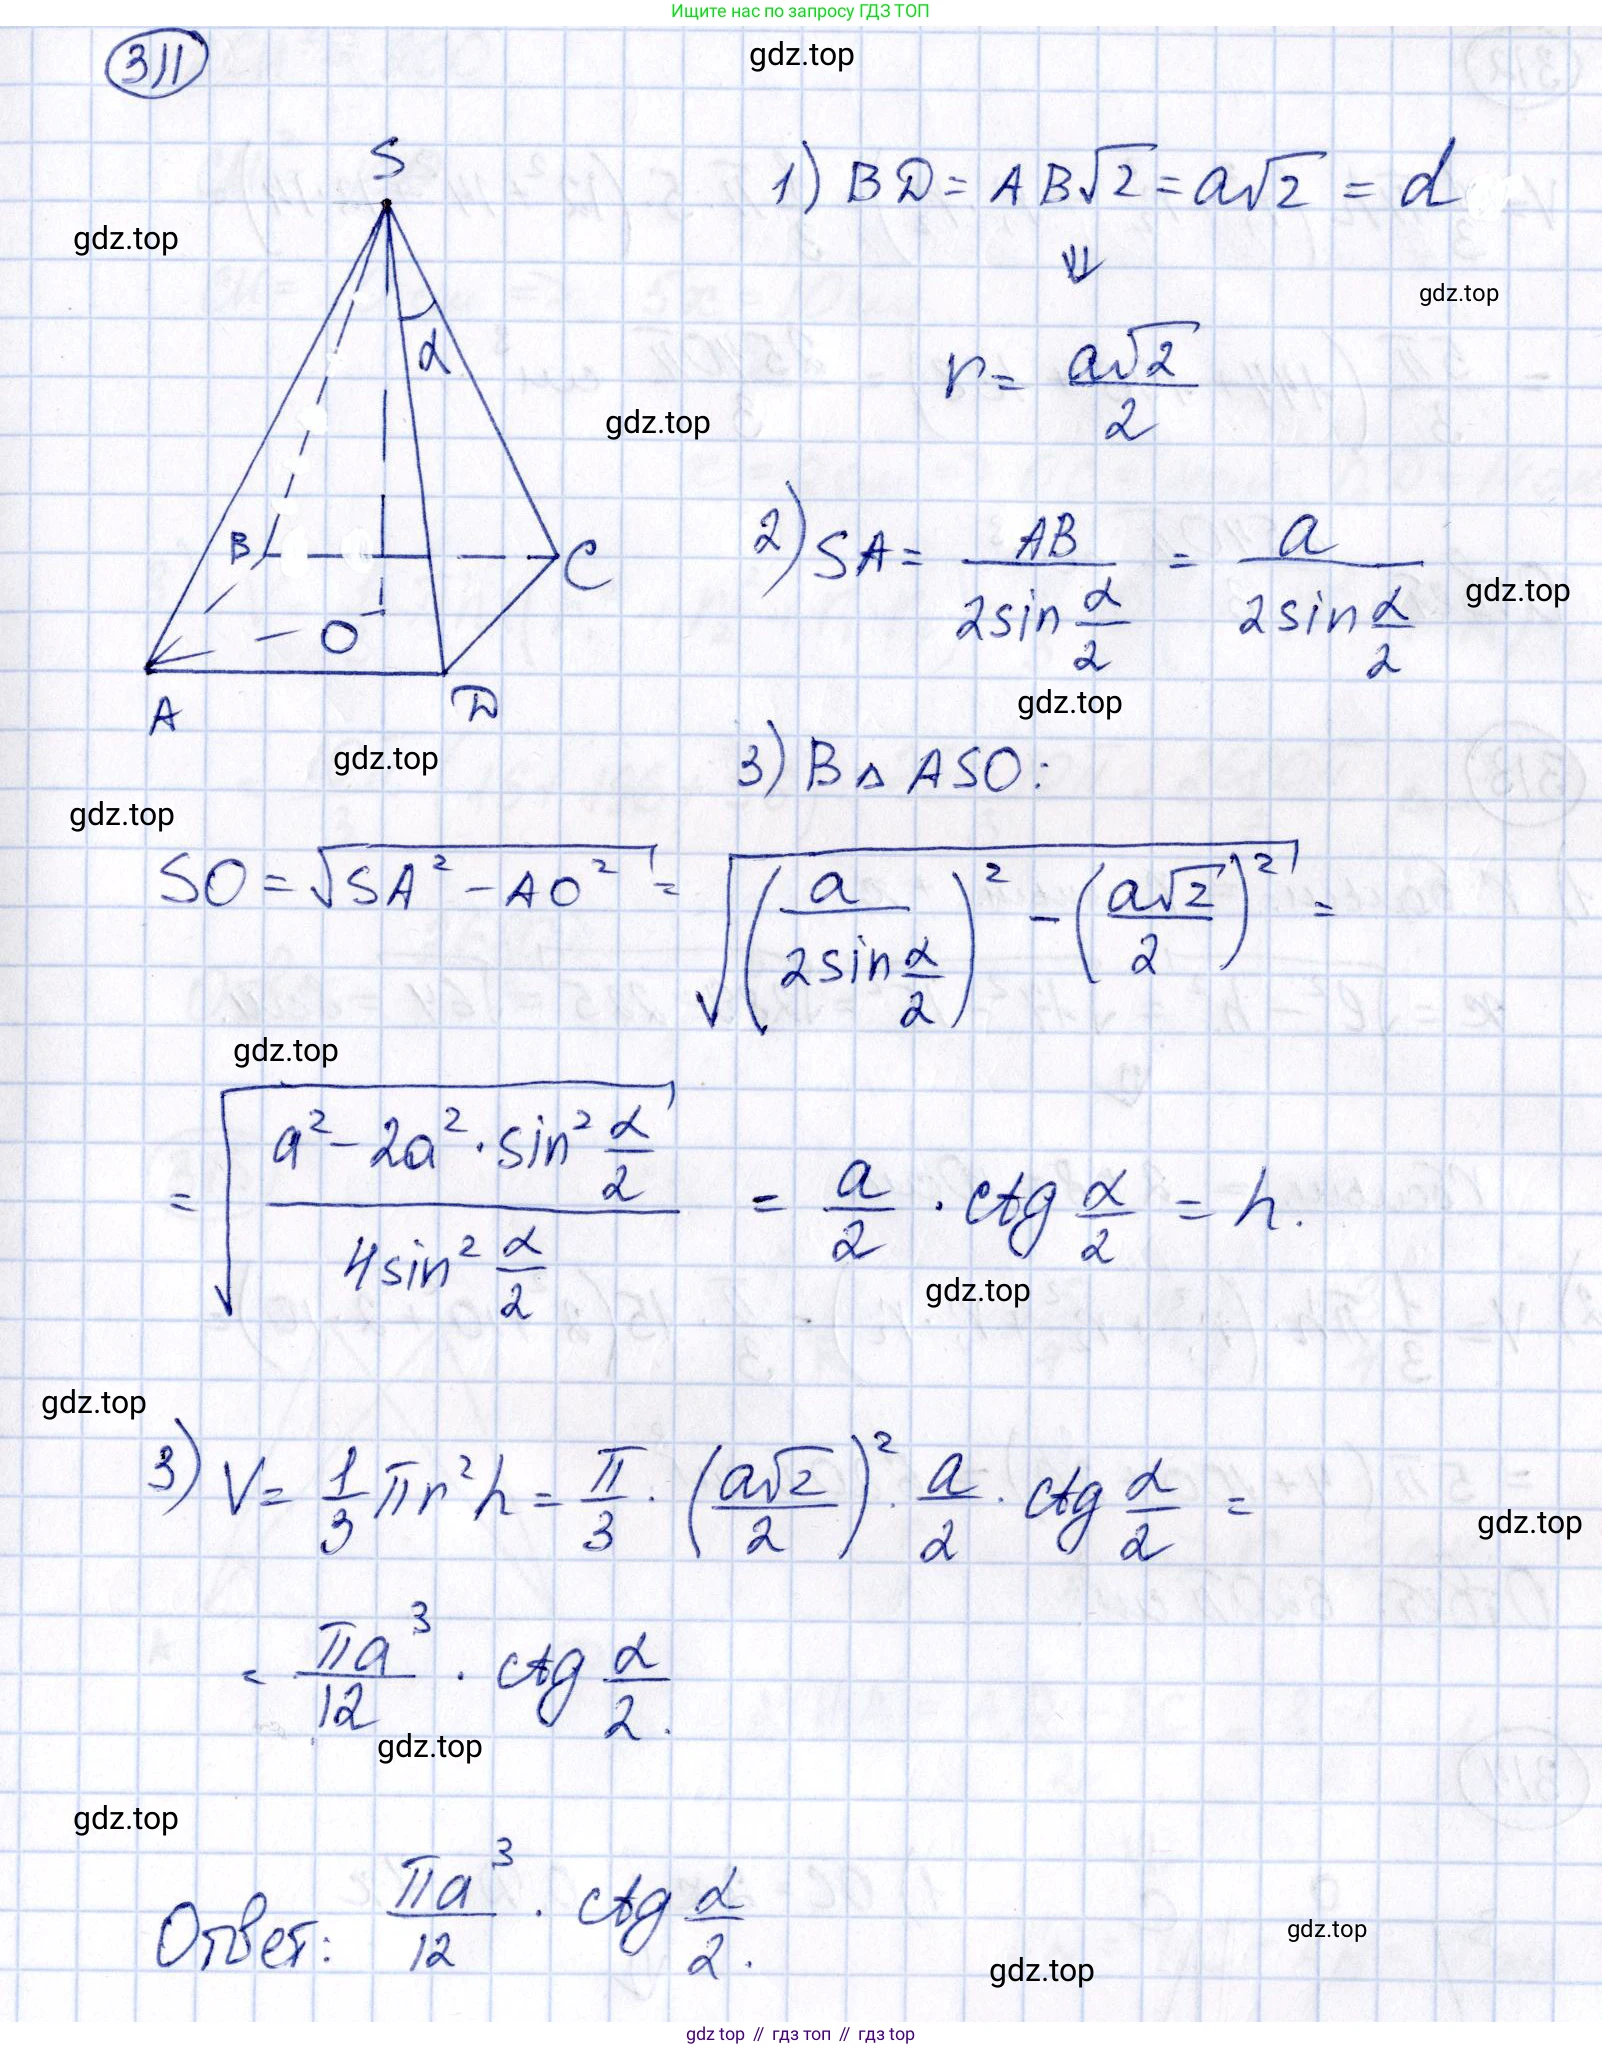 Ищите нас по запросу ГДЗ ТОП
311
gdz.top
S
1) BD = AB√2 = a√2 = d
gdz.top
⇓
gdz.top
r = a√2/2
α
gdz.top
B
C
2) SA = AB/(2sin α/2) = a/(2sin α/2)
gdz.top
O
A
D
gdz.top
gdz.top
3) В △ ASO:
gdz.top
SO = √(SA² - AO²) = √((a/(2sin α/2))² - (a√2/2)²) =
gdz.top
= √((a² - 2a² · sin² α/2)/(4sin² α/2)) = a/2 · ctg α/2 = h.
gdz.top
gdz.top
3) V = 1/3 πr²h = π/3 · (a√2/2)² · a/2 · ctg α/2 =
gdz.top
= πa³/12 · ctg α/2.
gdz.top
gdz.top
Ответ: πa³/12 · ctg α/2.
gdz.top
gdz.top
gdz top // гдз топ // gdz top